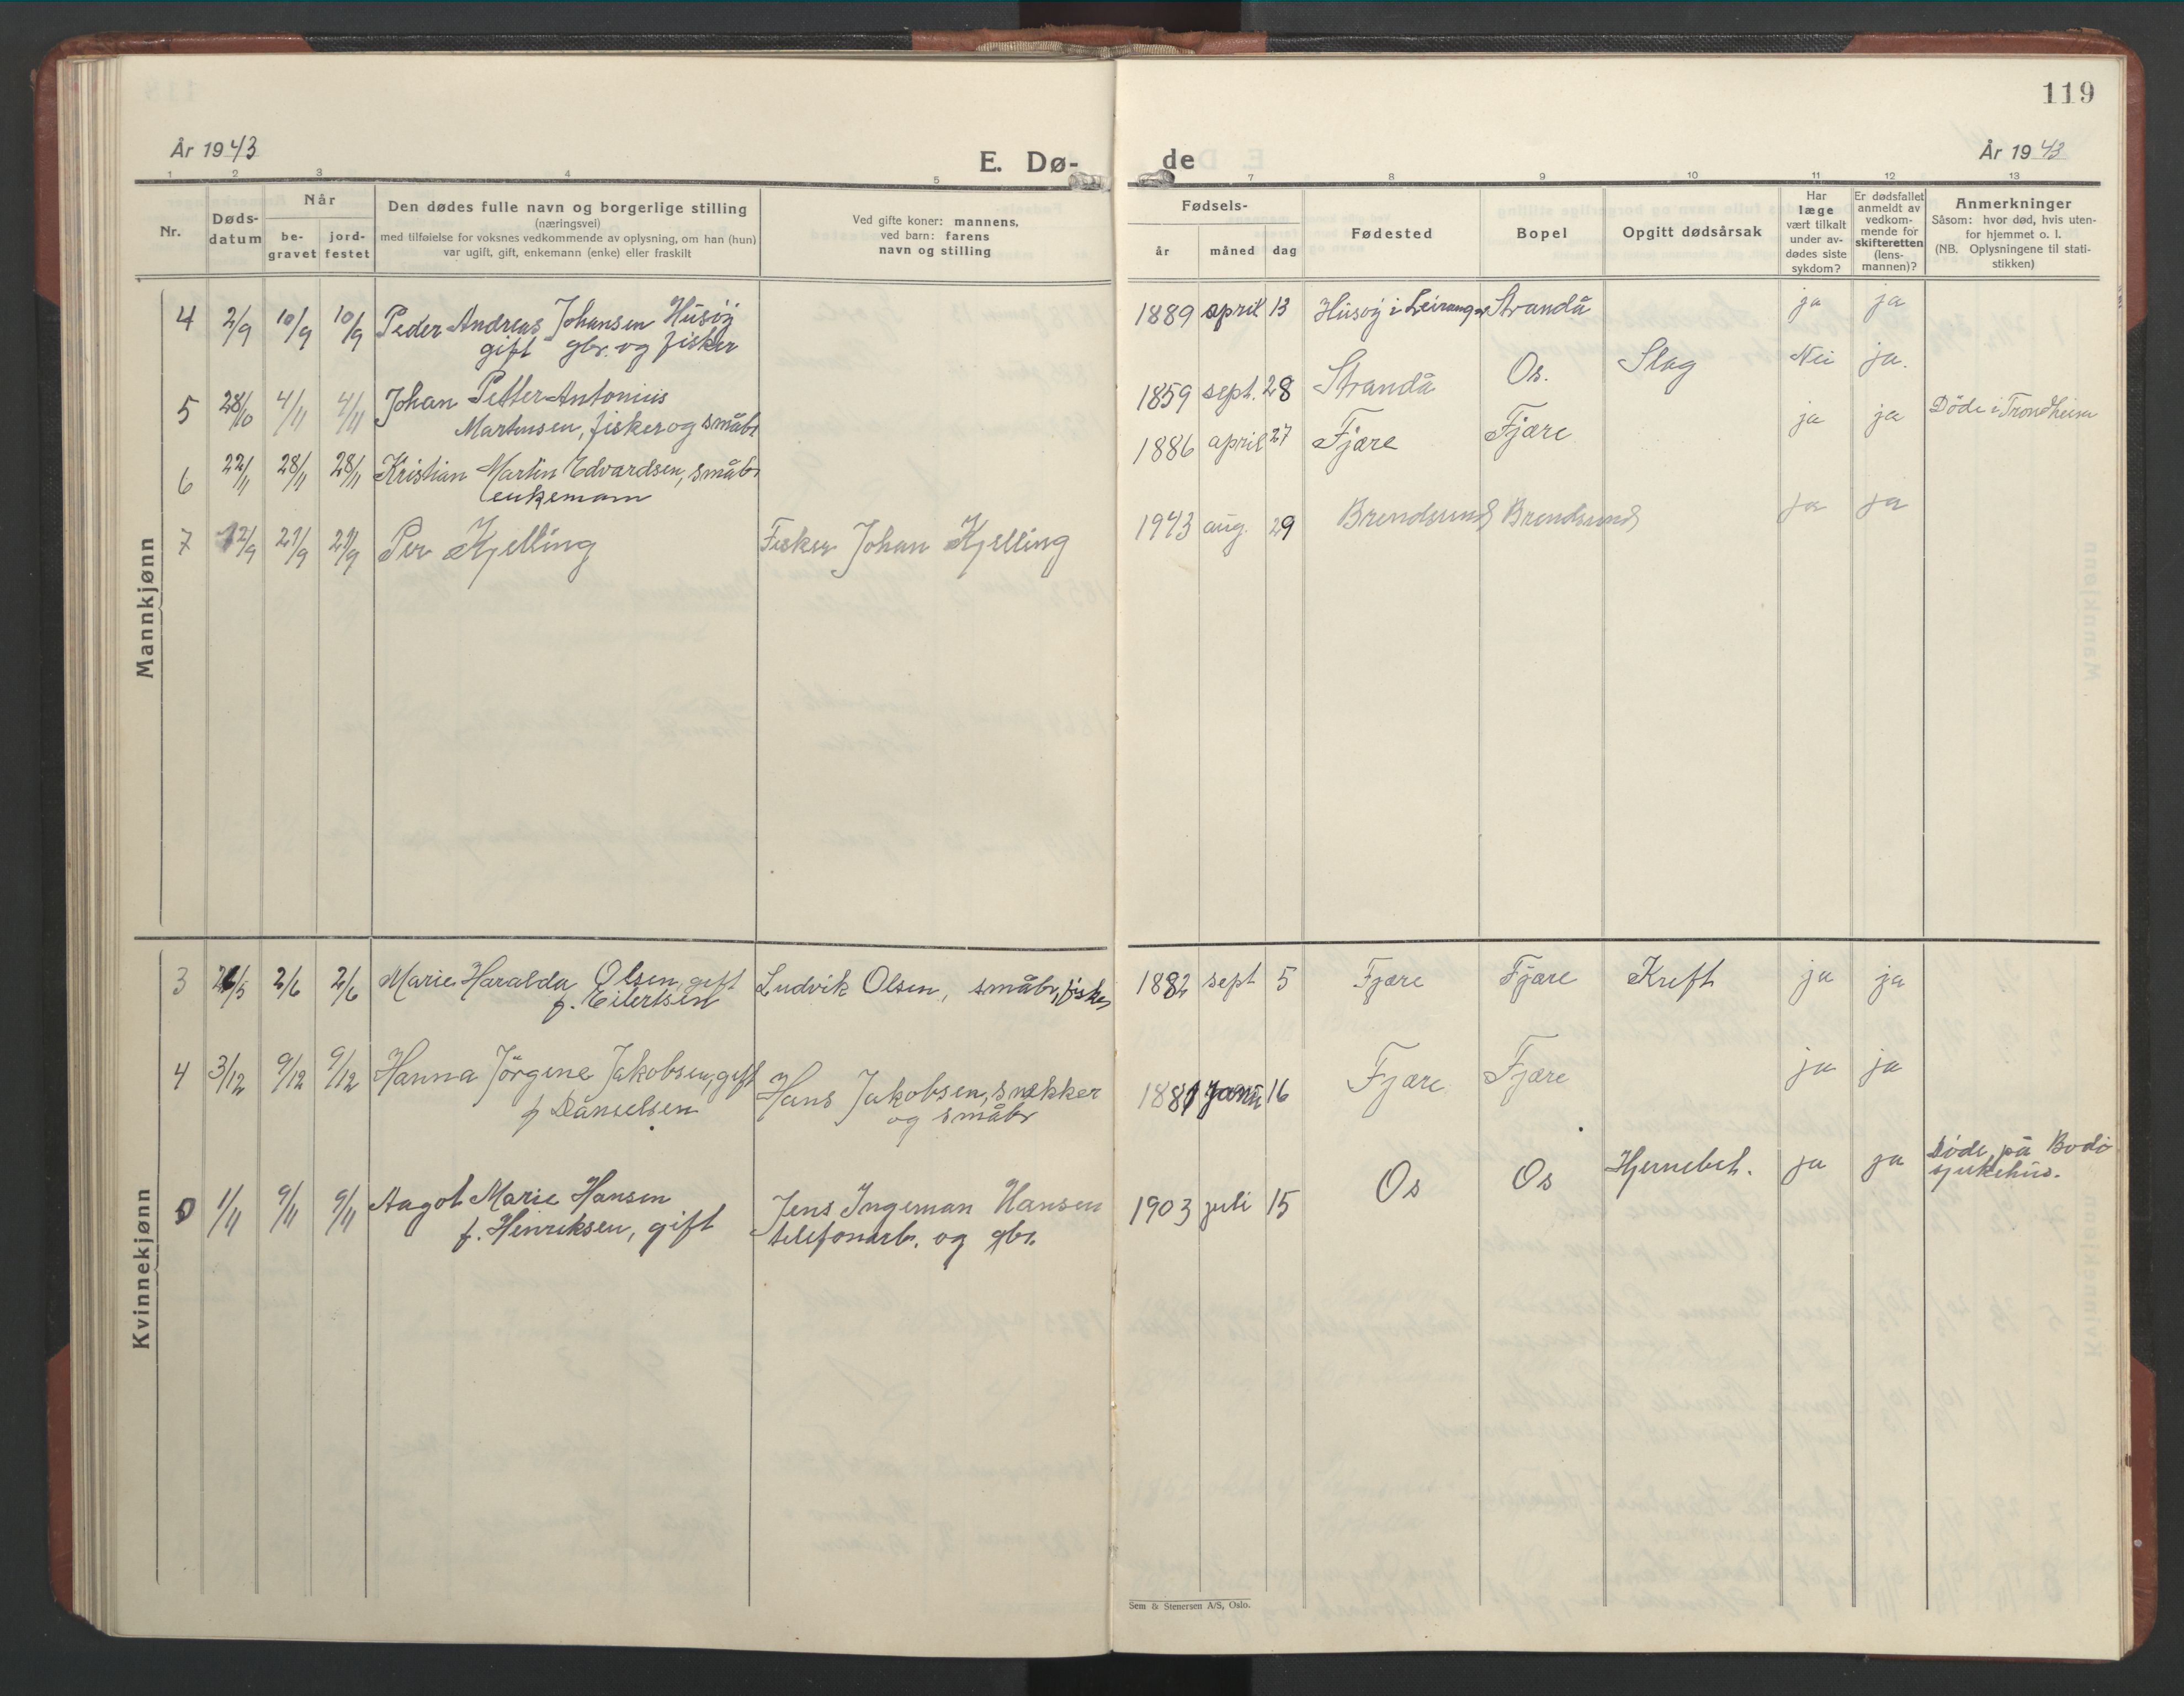 119
År 1943
E. Dø-
de
År 1943
1 2 3 4 5 7 8 9 10 11 12 13
Nr.
Døds-
datum
Når
be-
gravet
jord-
festet
Den dødes fulle navn og borgerlige stilling
(næringsvei)
med tilføielse for voksnes vedkommende av oplysning, om han (hun)
var ugift, gift, enkemann (enke) eller fraskilt
Ved gifte koner: mannens,
ved barn: farens
navn og stilling
Fødsels-
år måned dag
Fødested
Bopel
Opgitt dødsårsak
Har
læge
vært tilkalt
under av-
dødes siste
sykdom?
Er dødsfallet
anmeldt av
vedkom-
mende for
skifteretten
(lens-
mannen)?
Anmerkninger
Såsom: hvor død, hvis uten-
for hjemmet o. l.
(NB. Oplysningene til stati-
stikken)
Mannkjønn
4 2/9 10/9 10/9 Peder Andreas Johansen Husöy
gift gbr. og fisker
1889 april 13 Husøy i Leiranger Strandå ja ja
5 28/10 4/11 4/11 Johan Petter Antonius
Martinsen, fisker og småbr
1859 sept. 28 Strandå Os. Slag Nei ja.
6 22/11 28/11 28/11 Kristian Martin Edvardsen, småbr
enkemann
1886 april 27 Fjære Fjære ja ja Döde i Trondheim
7 12/9 21/9 21/9 Per Kjelling Fisker Johan Kjelling
1943 aug. 29 Brendsund Brendsund ja ja
Kvinnekjønn
3 26/5 2/6 2/6 Marie Haralda Olsen, gift
f. Eilertsen
Ludvik Olsen, småbr, fisker
1882 sept 5 Fjære Fjære Kreft ja ja
4 3/12 9/12 9/12 Hanna Jörgine Jakobsen, gift
f Danielsen
Hans Jakobsen, snekker
og småbr
1881 janu 16 Fjære Fjære ja ja
1/11 9/11 9/11 Aagot Marie Hansen
f. Henriksen, gift
Jens Ingeman Hansen
telefonarb. og gbr.
1903 juli 15 Os Os Hjernebet. ja ja Döde på Bodö
sjukehus.
Sem & Stenersen A/S, Oslo.